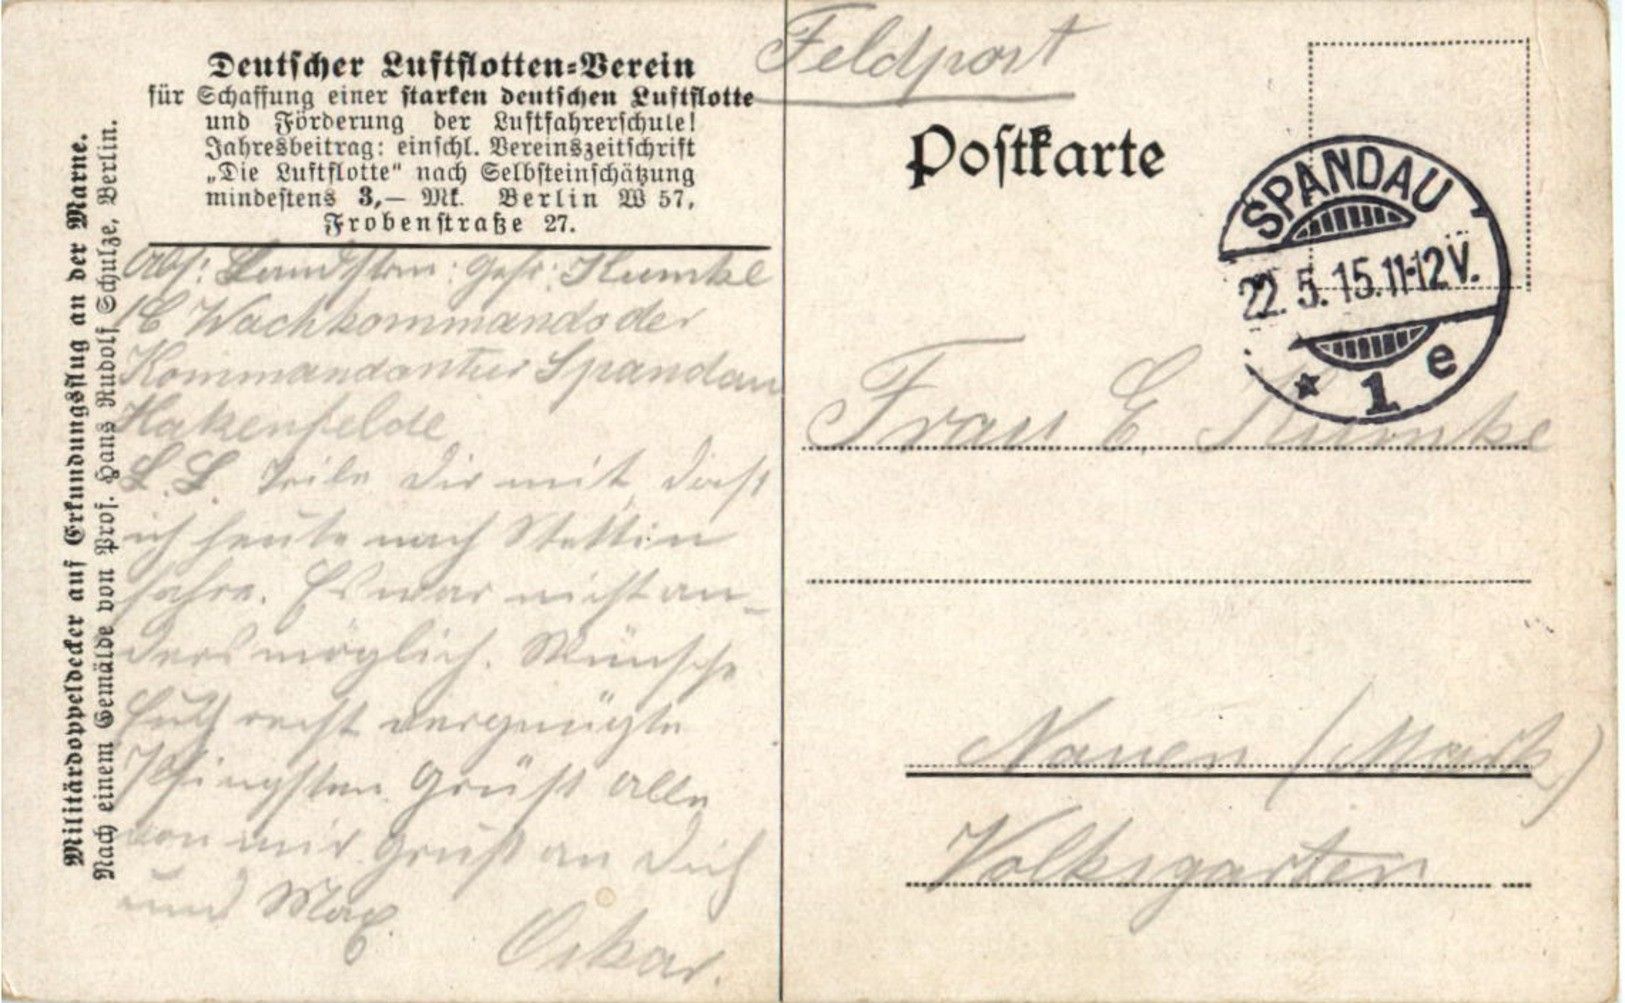 Deutscher Luftflotten-Verein
für Schaffung einer starken deutschen Luftflotte
und Förderung der Luftfahrerschule!
Jahresbeitrag: einschl. Vereinszeitschrift
„Die Luftflotte“ nach Selbsteinschätzung
mindestens 3,— Mk. Berlin W 57,
Frobenstraße 27.
Militärdoppeldecker auf Erkundungsflug an der Marne.
Nach einem Gemälde von Prof. Hans Rudolf Schulze, Berlin.
Abs: Landstrm: Gefr: Kumke
Wachkommando der
Kommandantur Spandau
Hakenfelde
L. L. Teile Dir mit, daß
ich heute nach Stettin
fahre. Es war nicht an-
ders möglich. Wünsche
Euch recht vergnügte
Pfingsten. Grüße alle
von mir. Gruß an Dich
und Max.
Oskar.
Feldpost
Postkarte
SPANDAU
22.5.15.11-12V.
* 1 e
Frau E. Kumke
Nauen (Mark)
Volksgarten